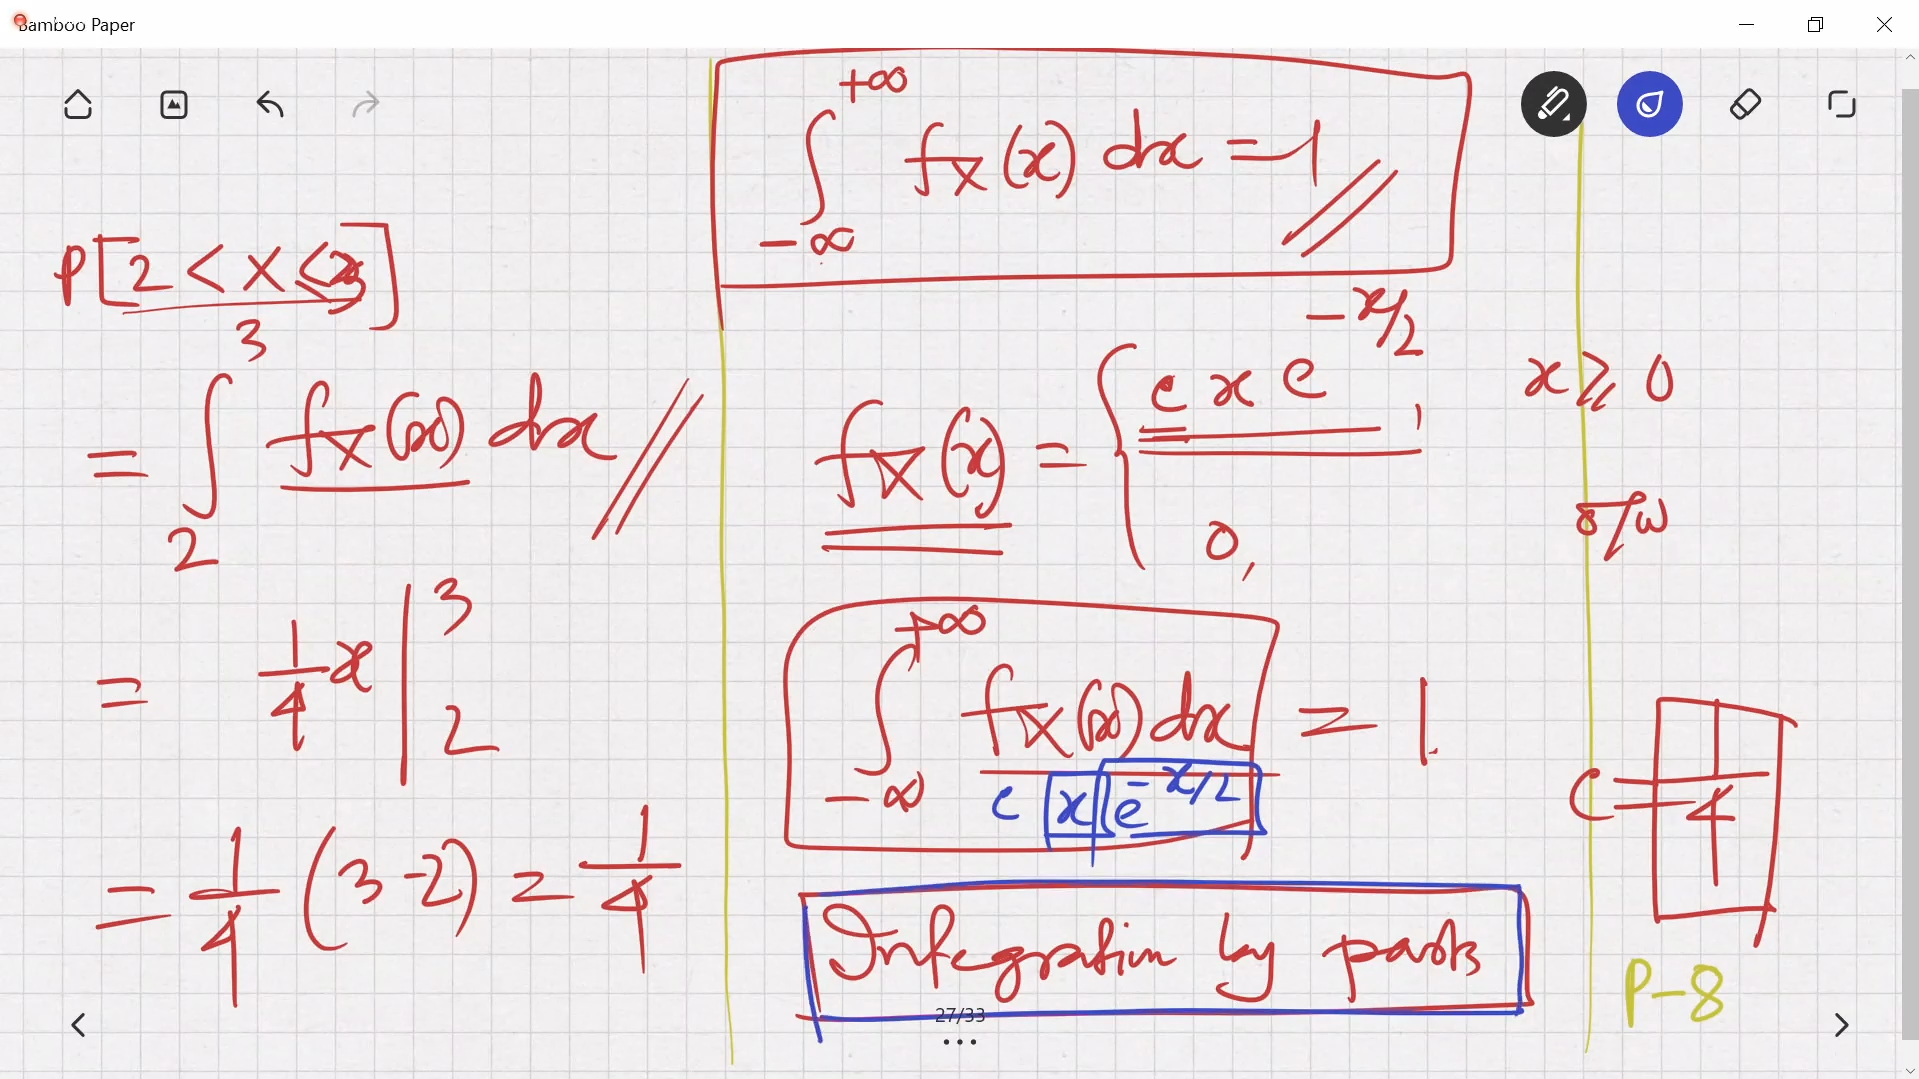 Bamboo Paper
P[2 < X ≤ 3]
= ∫₂³ fx(x) dx
= 1/4 x |₂³
= 1/4 (3-2) = 1/4
∫₋∞⁺∞ fx(x) dx = 1
fx(x) = { c x e^(-x/2), x ≥ 0
0, o/w
∫₋∞⁺∞ fx(x) dx = 1.
c x e^(-x/2)
Integration by parts
C = 1/4
P-8
27/33